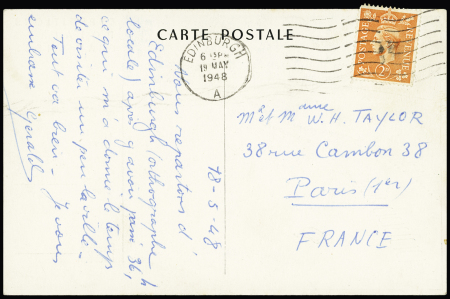 CARTE POSTALE
EDINBURGH
6 15 PM
19 MAY
1948
A
POSTAGE REVENUE
2D
18-5-48
Nous repartons d'
Edimburgh (orthographe
locale) après y avoir passé 36 h
ce qui m'a donné le temps
de visiter un peu la ville -
Tout va bien - Je vous
embrasse Gérald
Mr et Mme W. H. TAYLOR
38 rue Cambon 38
Paris (1er)
FRANCE